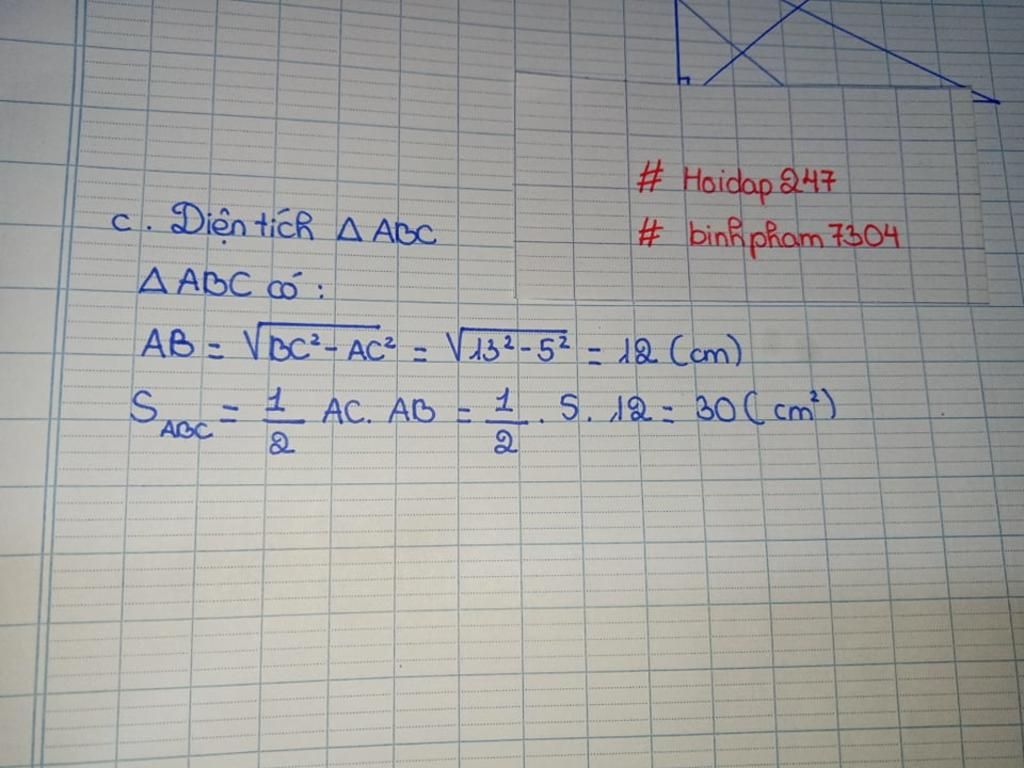 # Hoidap 247
# binhpham7304
c. Diện tích Δ ABC
Δ ABC có:
AB = √BC² - AC² = √13² - 5² = 12 (cm)
S_ABC = 1/2 AC. AB = 1/2 . 5. 12 = 30 ( cm²)